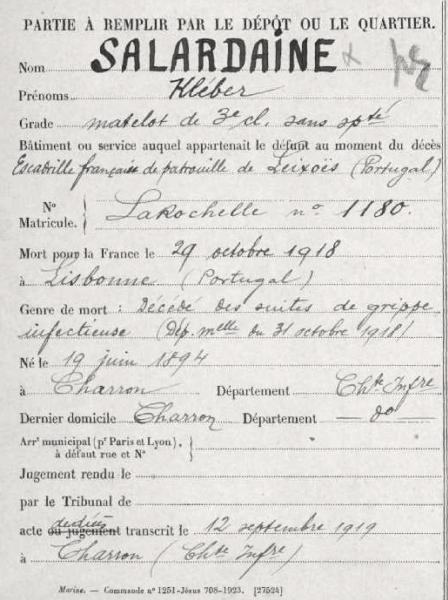 PARTIE À REMPLIR PAR LE DÉPÔT OU LE QUARTIER.
Nom SALARDAINE
Prénoms Kléber
Grade matelot de 3e cl. sans spté
Bâtiment ou service auquel appartenait le défunt au moment du décès
Escadrille française de patrouille de Leixoës (Portugal)
No Matricule. LaRochelle no 1180.
Mort pour la France le 29 octobre 1918
à Lisbonne (Portugal)
Genre de mort : Décédé des suites de grippe
infectieuse (Dép. melle du 31 octobre 1918)
Né le 19 juin 1894
à Charron Département Chte Infre
Dernier domicile Charron Département do
Arrt municipal (pr Paris et Lyon),
à défaut rue et No
Jugement rendu le
par le Tribunal de
acte ou jugement transcrit le 12 septembre 1919
à Charron (Chte Infre)
Marine. — Commande no 1251-Jésus 708-1923. [27524]